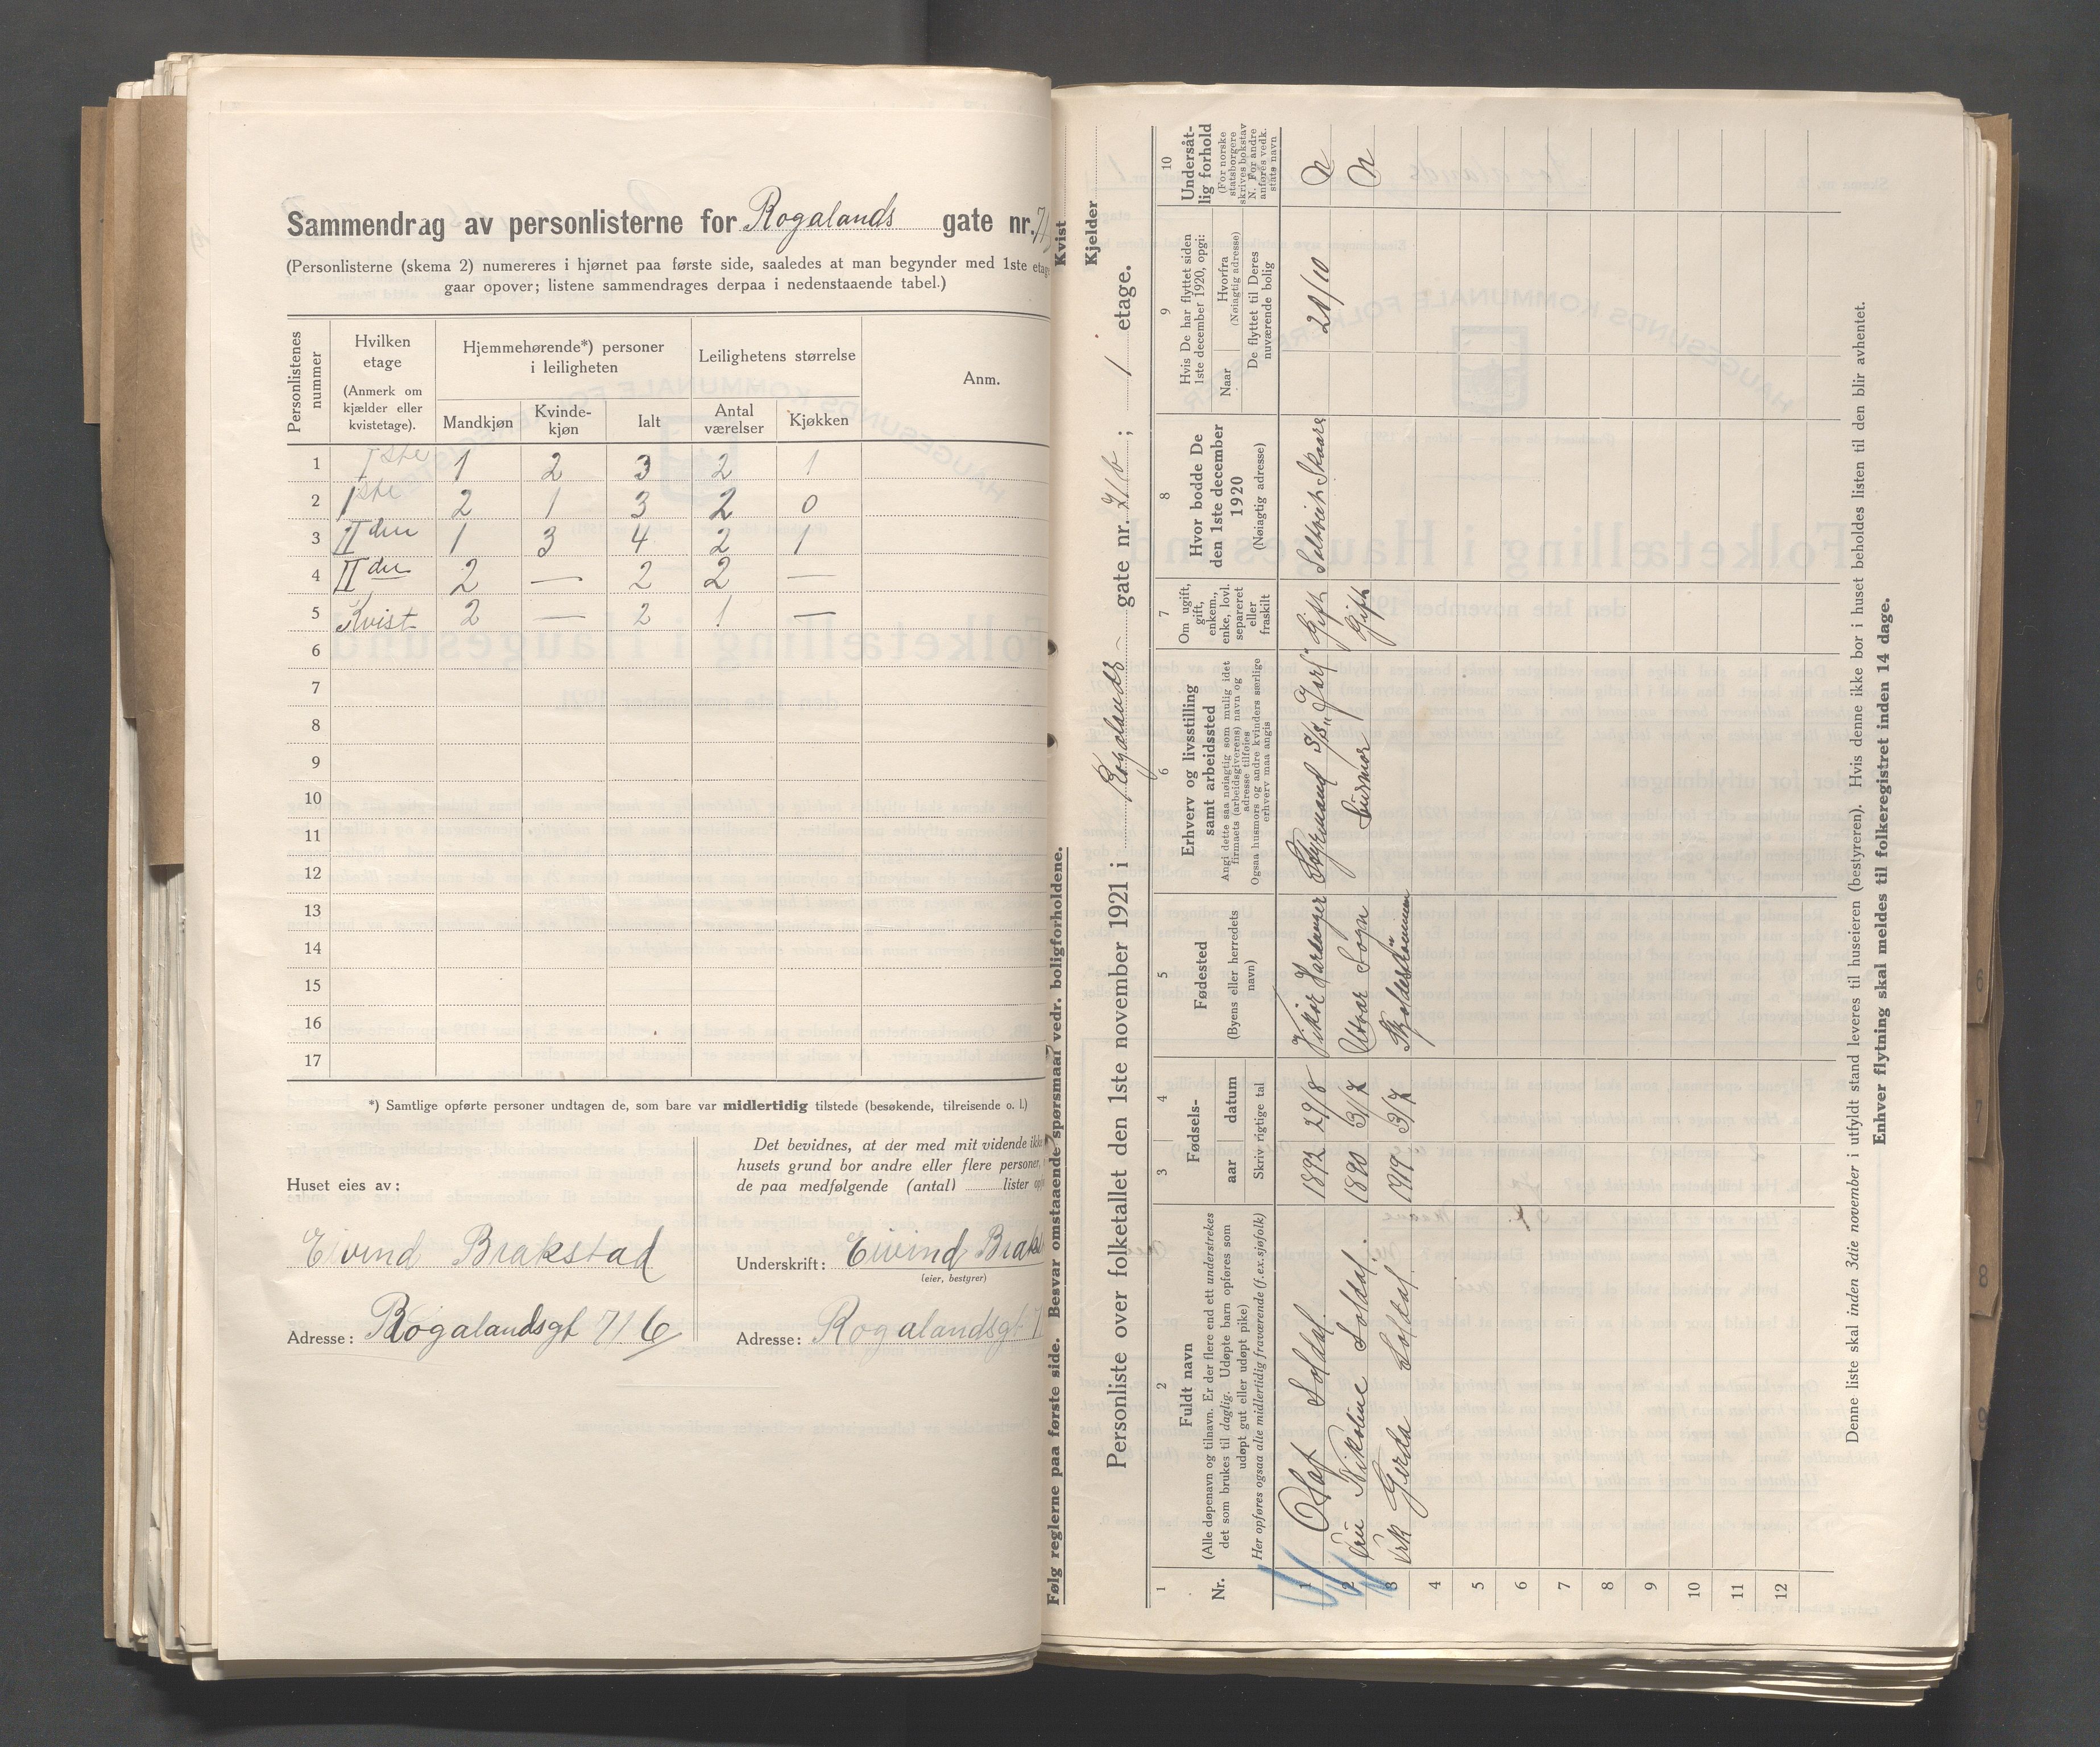 Sammendrag av personlisterne for Rogalands gate nr. 71
(Personlisterne (skema 2) numereres i hjørnet paa første side, saaledes at man begynder med 1ste etage
gaar opover; listene sammendrages derpaa i nedenstaaende tabel.)
Personlistenes nummer
Hvilken etage
(Anmerk om kjælder eller kvistetage).
Hjemmehørende*) personer i leiligheten
Leilighetens størrelse
Anm.
Mandkjøn Kvindekjøn Ialt Antal værelser Kjøkken
1 Iste 1 2 3 2 1
2 1ste 2 1 3 2 0
3 II den 1 3 4 2 1
4 II den 2 — 2 2 —
5 Kvist 2 — 2 1 —
6
7
8
9
10
11
12
13
14
15
16
17
*) Samtlige opførte personer undtagen de, som bare var midlertidig tilstede (besøkende, tilreisende o. l.)
Huset eies av:
Eivind Brakstad
Adresse: Rogalandsgt 71 b
Det bevidnes, at der med mit vidende ikke
husets grund bor andre eller flere personer,
de paa medfølgende (antal) lister
Underskrift: Eivind
(eier, bestyrer)
Adresse: Rogalandsgt
Følg reglerne paa første side. Besvar omstaaende spørsmaal vedr. boligforholdene.
Kvist
Kjelder
Personliste over folketallet den 1ste november 1921 i Rogalands gate nr. 71 b ; 1 etage.
1 2 3 4 5 6 7 8 9 10
Nr.
Fuldt navn
(Alle døpenavn og tilnavn. Er der flere end ett understrekes
det som brukes til daglig. Udøpte barn opføres som
udøpt gut eller udøpt pike)
Her opføres ogsaa alle midlertidig fraværende (f.ex. sjøfolk)
Fødsels-
aar datum
Skriv rigtige tal
Fødested
(Byens eller herredets navn)
Erhverv og livsstilling
samt arbeidssted
Angi dette saa nøiagtig som mulig idet
firmaets (arbeidsgiverens) navn og
adresse tilføies
Ogsaa husmors og andre kvinders særlige
erhverv maa angis
Om ugift, gift, enkem., enke, lovl. separeret eller fraskilt
Hvor bodde De
den 1ste december
1920
(Nøiagtig adresse)
Hvis De har flyttet siden
1ste december 1920, opgi:
Naar
Hvorfra
(Nøiagtig adresse)
De flyttet til Deres
nuværende bolig
Undersåtlig forhold
(For norske statsborgere skrives bokstav N. For andre anføres vedk. stats navn
1 Olaf Soldal. 1892 29/8 Vikør Hardanger Styrmand S/S „Jarl" Gift Solveit Skaare 28/10 N
2 Fru Nikoline Soldal. 1890 31/7 Utvær Sogn Husmor Gift N
3 Frk Gerda Soldal. 1919 3/7 Skjoldestrømmen
4
5
6
7
8
9
10
11
12
Denne liste skal inden 3die november i utfyldt stand leveres til huseieren (bestyreren). Hvis denne ikke bor i huset beholdes listen til den blir avhentet.
Enhver flytning skal meldes til folkeregistret inden 14 dage.
6
7
8